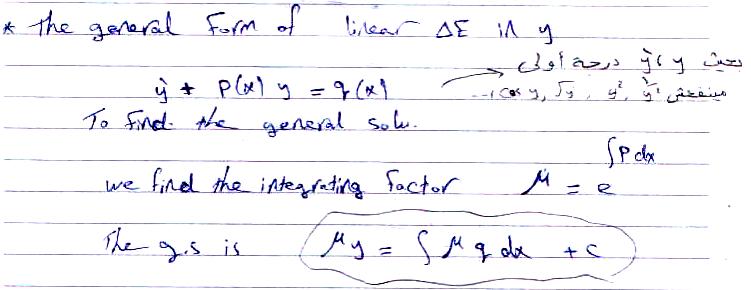 * the general form of linear ΔE in y
بحيث y، ẏ درجة أولى
ẏ + P(x) y = q(x)
مينفعش ẏ², y², √y, cos y, ...
To find the general solu.
we find the integrating factor μ = e^∫P dx
The g.s is μy = ∫ μ q dx + c